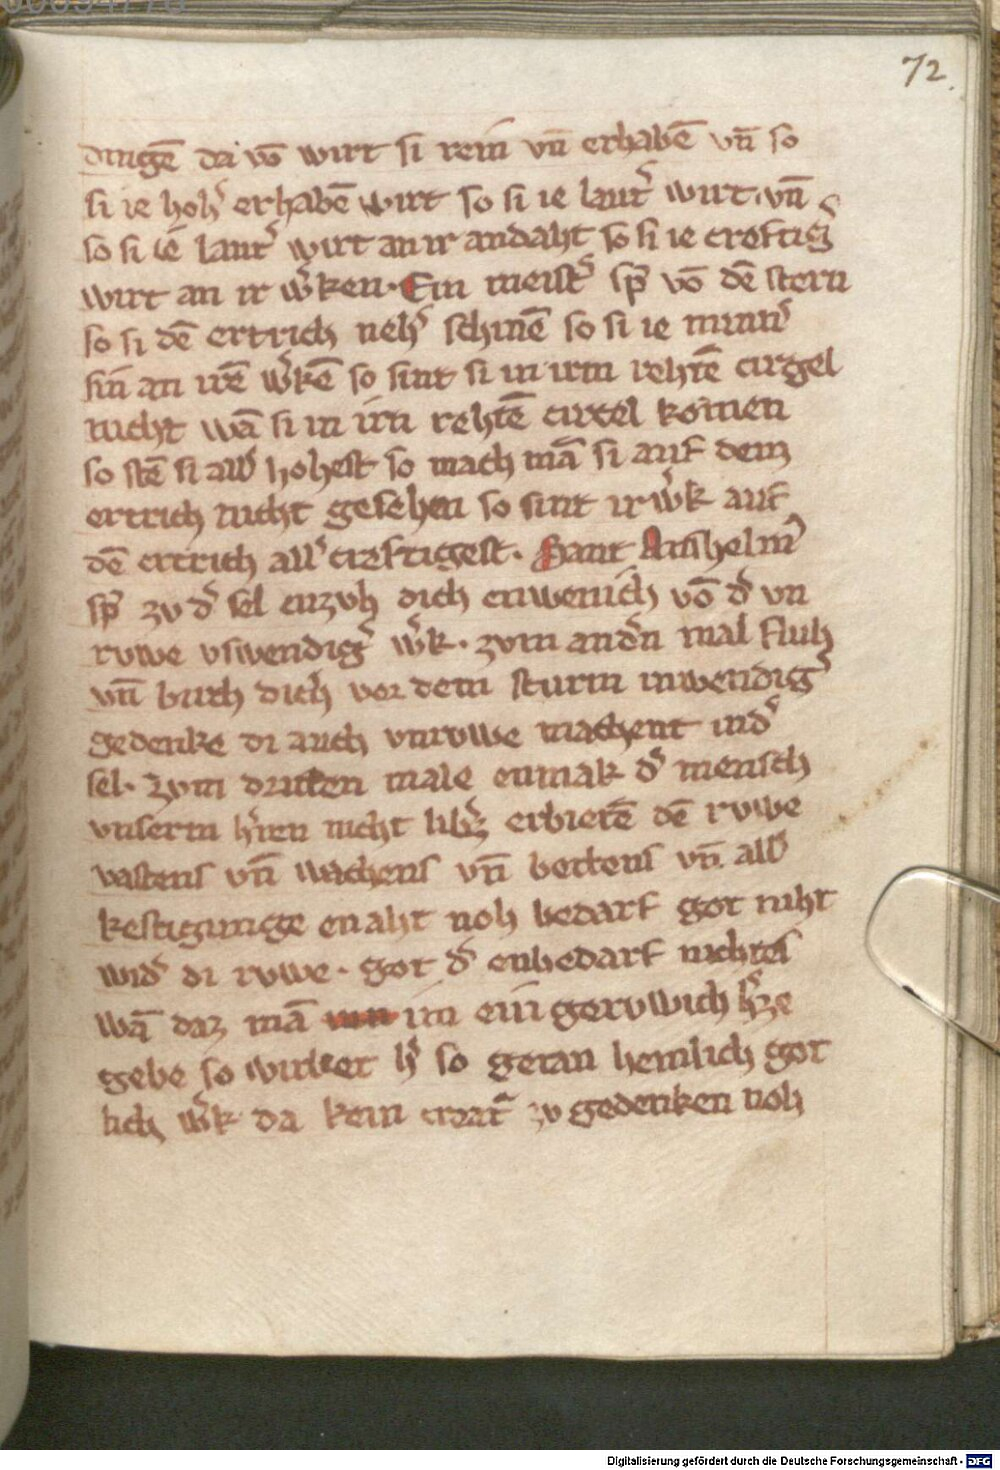 72
dingē da vō wirt si rein vn̄ erhabē vn̄ so
si ie hohˀ erhabē wirt so si ie lautˀ wirt · vn̄
so si ie lautˀ wirt an ir andaht so si ie creftigˀ
wirt an ir wˀken · Ein meistˀ sp̄ vō dē stern
so si dē ertrich nehˀ schinē so si ie minnˀ
sin an irē wˀkē so sint si in irm rehtē cirgel
nicht wā si in irn rehtē cirxel komen
so stē si allˀ hohest so mach mā si auf dem
ertrich nicht gesehen so sint ir wˀk auf
dē ertrich allˀ creftigest · Sant Anshelmˀ
sp̄ zv dˀ sel enzvh dich en wenich vō dˀ vn
rvwe vswendigˀ wˀk · zvm andˀn mal fluh
vn̄ birch dich vor dem sturm inwendigˀ
gedenke di auch vnrvwe machent in dˀ
sel · zvm dritten male enmak dˀ mensch
vnserm hˀren nicht libˀz erbietē dē rvwe
vastens vn̄ wachens vn̄ bettens vn̄ allˀ
kestigunge en aht noh bedarf got niht
widˀ di rvwe · got dˀ enbedarf nichtes
wā daz mā im ein gervwich hˀze
gebe so wirket hˀ so getan heimlich got
lich wˀk da kein creatˀ zv gedenken noh
Digitalisierung gefördert durch die Deutsche Forschungsgemeinschaft - DFG